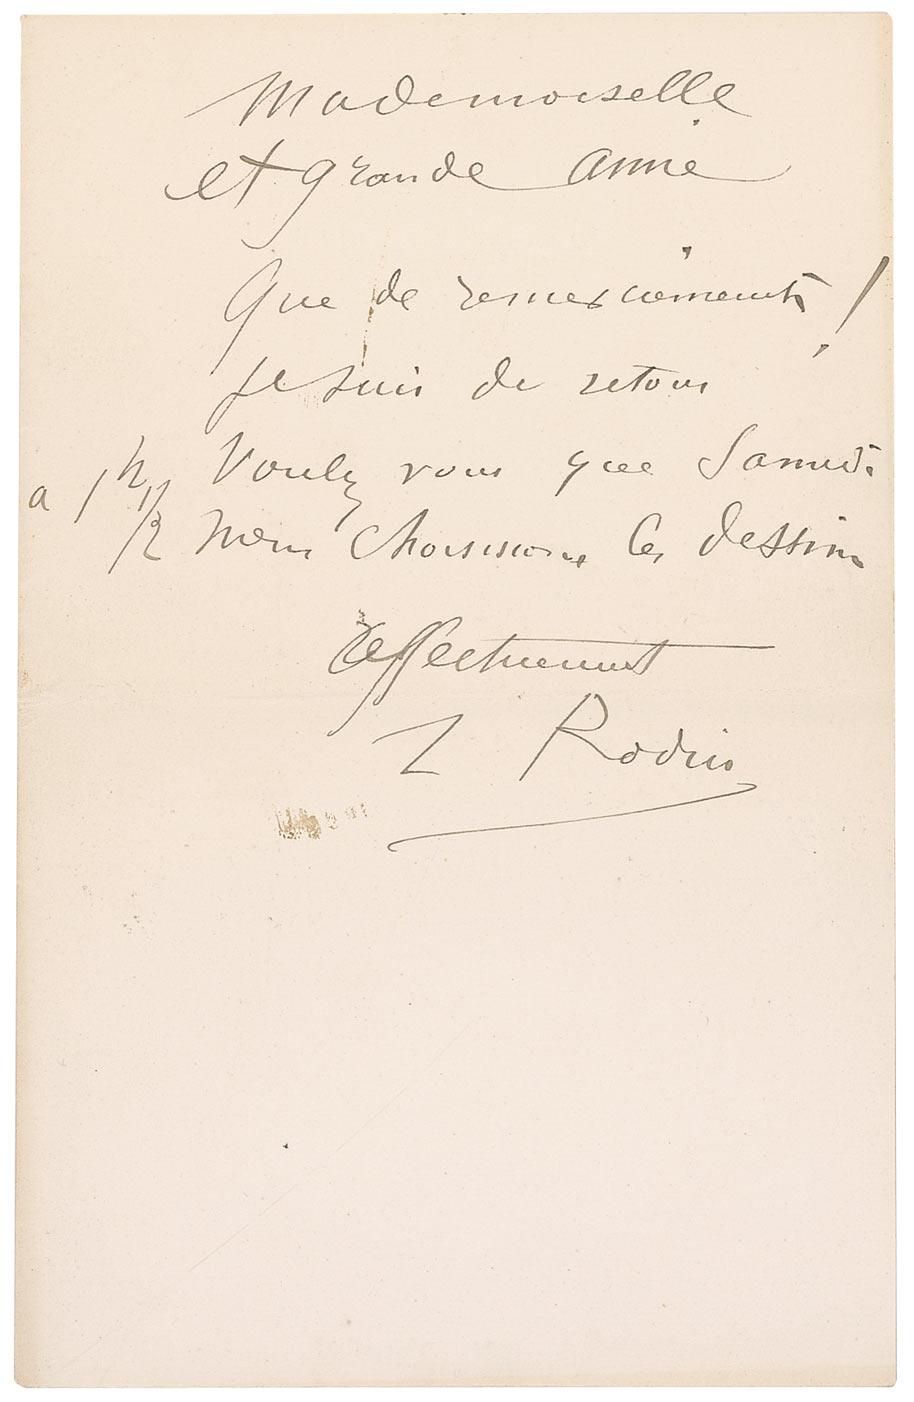 Mademoiselle
et grande amie
Que de remerciements !
Je suis de retour
Voulez vous que Samedi
a 1h 1/2 nous choisissions les dessins
affectueusement
A Rodin